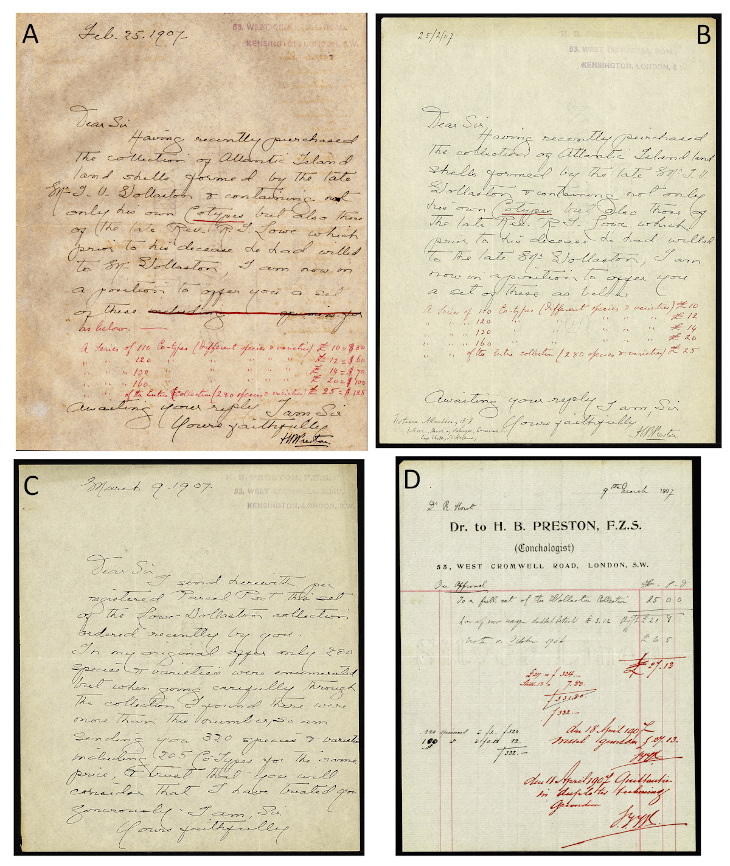 A
Feb. 25. 1907.
53, WEST
KENSINGTON, LONDON, S.W.
Dear Sir
Having recently purchased
the collection of Atlantic Island
land shells formed by the late
Mr T. V. Wollaston & containing not
only his own Cotypes but also those
of the late Rev. R. T. Lowe which
prior to his decease he had willed
to Mr Wollaston, I am now in
a position to offer you a set
of these including
as below
A Series of 110 Co-types (different species & varieties) £ 10 = $ 50
" " 120 " " " " £ 12 = $ 60
" " 130 " " " " £ 14 = $ 70
" " 160 " " " " £ 20 = $ 100
" of the entire collection (280 species & varieties) £ 25 = $ 125
Awaiting your reply I am Sir
Yours faithfully
H B Preston
B
25/2/07
53, WEST
KENSINGTON, LONDON, S.
Dear Sir,
Having recently purchased
the collection of Atlantic Island land
shells formed by the late Mr T. V.
Wollaston & containing not only
his own Cotypes but also those of
the late Rev. R. T. Lowe which
prior to his decease he had willed
to the late Mr Wollaston, I am
now in a position to offer you
a set of these as below
A Series of 110 Co-types (different species & varieties) £ 10
" " 120 " " " " £ 12
" " 130 " " " " £ 14
" " 160 " " " " £ 20
" of the entire collection (280 species & varieties) £ 25
Awaiting your reply I am Sir
Yours faithfully
H B Preston
C
March 9. 1907.
H. B. PRESTON, F.Z.S.
53, WEST CROMWELL ROAD,
KENSINGTON, LONDON, S.W.
Dear Sir,
I send herewith per
registered Parcel Post the set
of the Lowe-Wollaston collection
ordered recently by you.
In my original offer only 280
species & varieties were enumerated
but when going carefully through
the collection I found there were
more than the number, so am
sending you 320 species & varieties
including 205 CoTypes for the same
price, & trust that you will
consider that I have treated you
generously. I am, Sir
Yours faithfully
D
9th March 1907
Dr R Horst
Dr. to H. B. PRESTON, F.Z.S.
(Conchologist)
53, WEST CROMWELL ROAD, LONDON, S.W.
On Approval
To a full set of the Wollaston Collection 25 0 0
£ 27.13
f 332.-
den 18 April 1907
den 18 April 1907